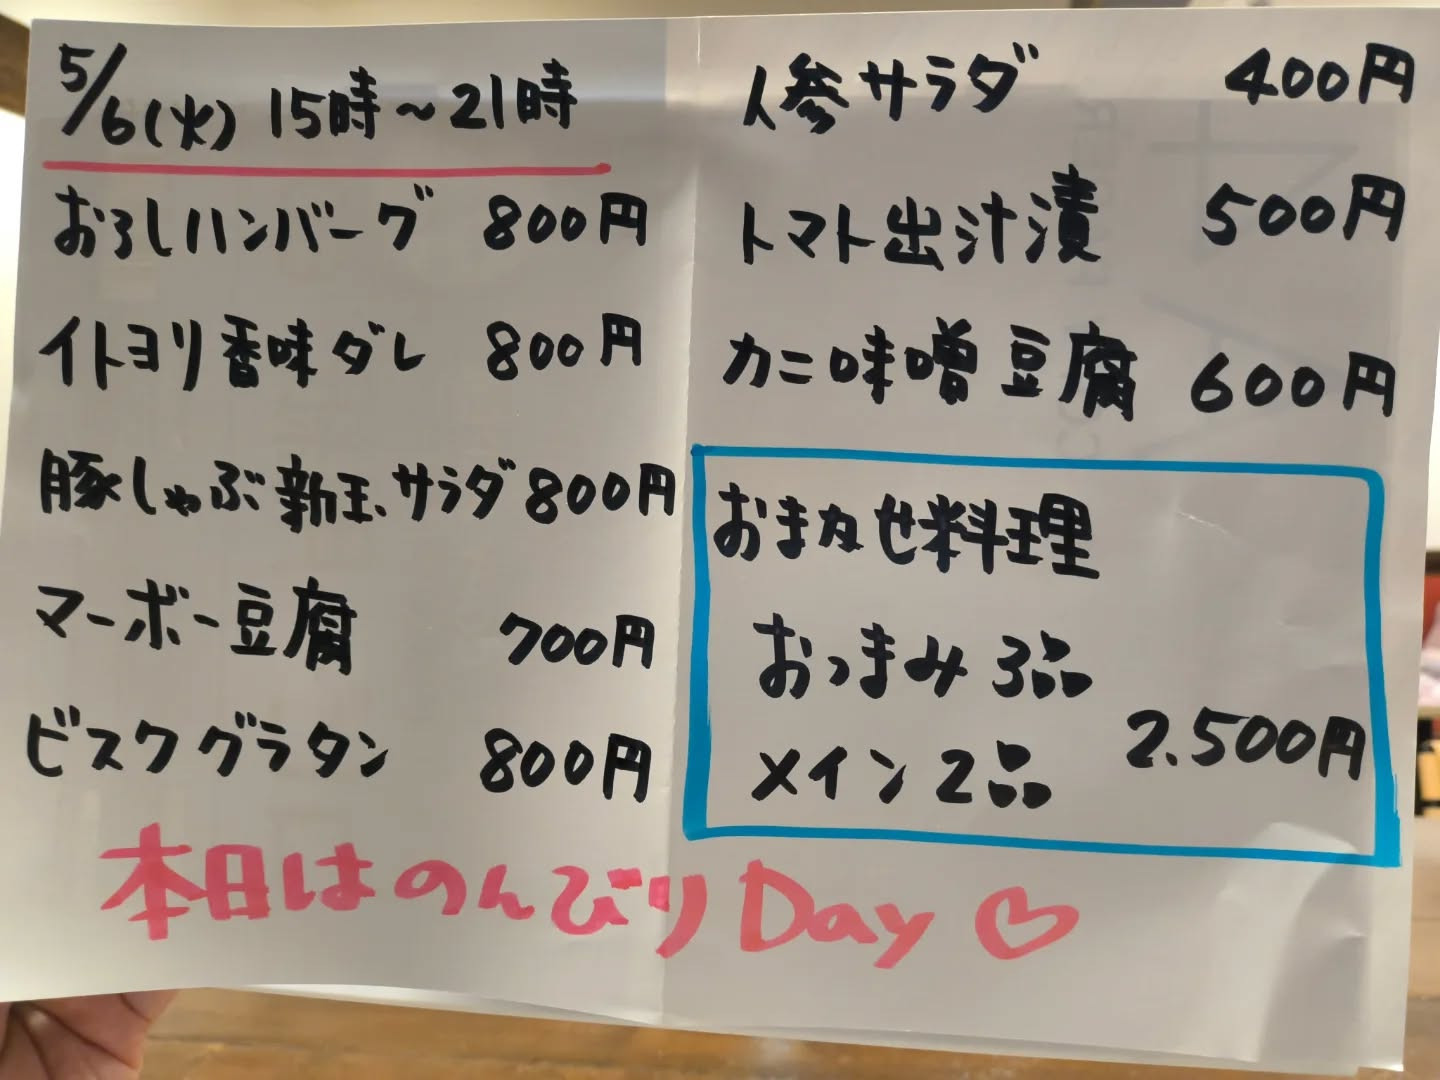 5/6(火) 15時〜21時
おろしハンバーグ 800円
イトヨリ香味ダレ 800円
豚しゃぶ新玉サラダ 800円
マーボー豆腐 700円
ビスクグラタン 800円
人参サラダ 400円
トマト出汁漬 500円
カニ味噌豆腐 600円
おまかせ料理
おつまみ3品
メイン2品 2.500円
本日はのんびりDay♡